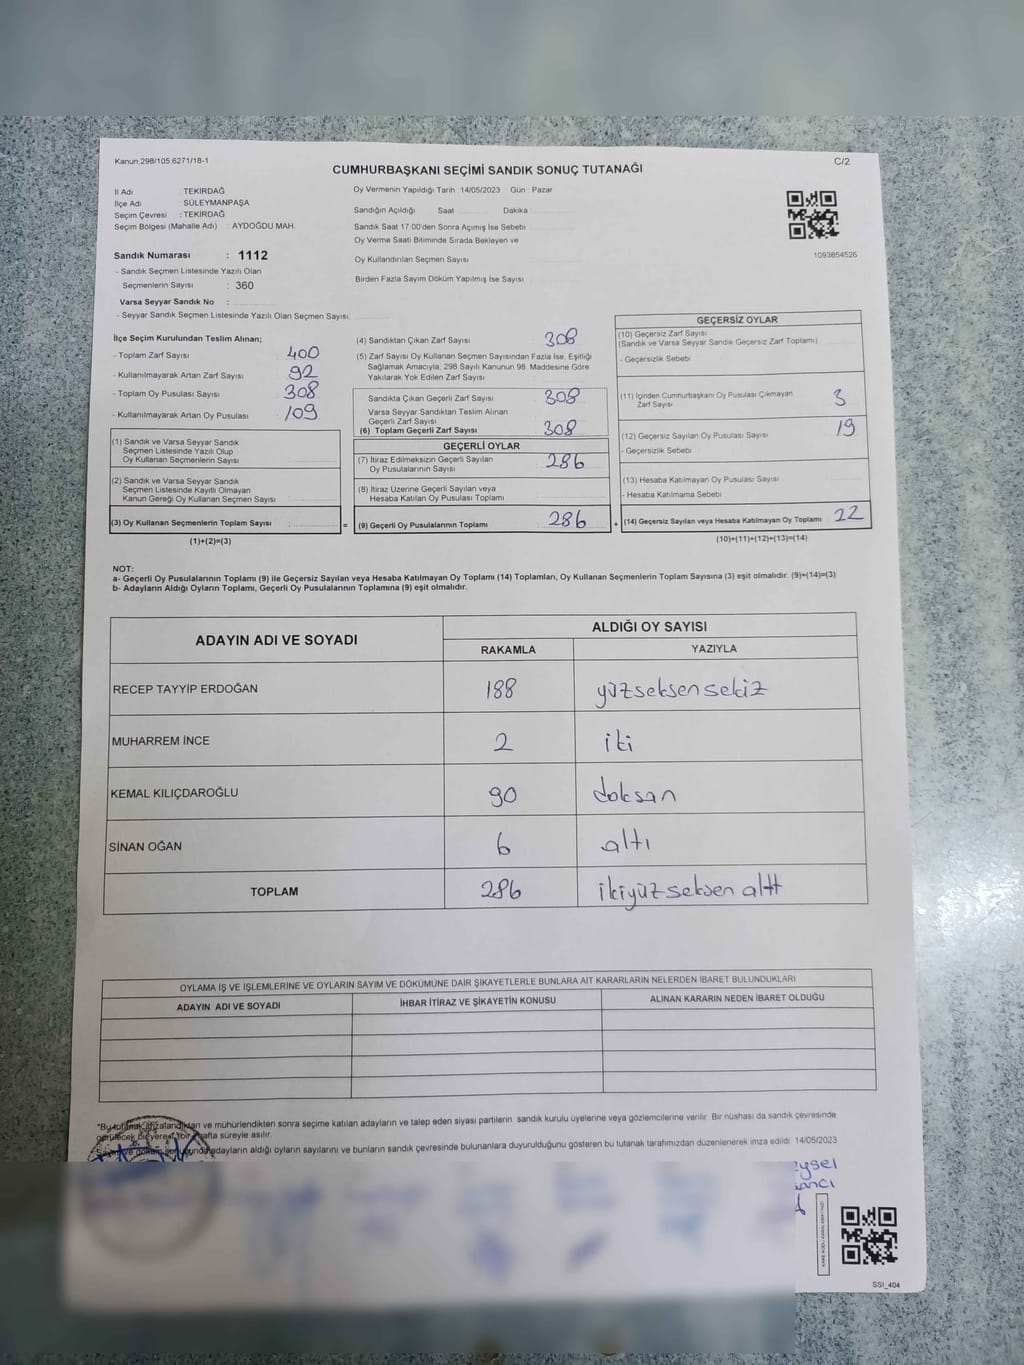 Kanun 298/105 6271/18-1
C/2
CUMHURBAŞKANI SEÇİMİ SANDIK SONUÇ TUTANAĞI
İl Adı : TEKİRDAĞ
İlçe Adı : SÜLEYMANPAŞA
Seçim Çevresi : TEKİRDAĞ
Seçim Bölgesi (Mahalle Adı) : AYDOĞDU MAH.
Sandık Numarası : 1112
- Sandık Seçmen Listesinde Yazılı Olan
Seçmenlerin Sayısı : 360
Varsa Seyyar Sandık No :
- Seyyar Sandık Seçmen Listesinde Yazılı Olan Seçmen Sayısı:
Oy Vermenin Yapıldığı Tarih : 14/05/2023 Gün : Pazar
Sandığın Açıldığı Saat Dakika
Sandık Saat 17.00'den Sonra Açımış İse Sebebi
Oy Verme Saati Bitiminde Sırada Bekleyen ve
Oy Kullandırılan Seçmen Sayısı
Birden Fazla Sayım Döküm Yapılmış İse Sayısı
1093854526
İlçe Seçim Kurulundan Teslim Alınan;
- Toplam Zarf Sayısı 400
- Kullanılmayarak Artan Zarf Sayısı 92
- Toplam Oy Pusulası Sayısı 308
- Kullanılmayarak Artan Oy Pusulası 109
(1) Sandık ve Varsa Seyyar Sandık
Seçmen Listesinde Yazılı Olup
Oy Kullanan Seçmenlerin Sayısı
(2) Sandık ve Varsa Seyyar Sandık
Seçmen Listesinde Kayıtlı Olmayan
Kanun Gereği Oy Kullanan Seçmen Sayısı
(3) Oy Kullanan Seçmenlerin Toplam Sayısı :
(1)+(2)=(3)
(4) Sandıktan Çıkan Zarf Sayısı 308
(5) Zarf Sayısı Oy Kullanan Seçmen Sayısından Fazla İse, Eşitliği
Sağlamak Amacıyla; 298 Sayılı Kanunun 98. Maddesine Göre
Yakılarak Yok Edilen Zarf Sayısı
Sandıkta Çıkan Geçerli Zarf Sayısı 308
Varsa Seyyar Sandıktan Teslim Alınan
Geçerli Zarf Sayısı
(6) Toplam Geçerli Zarf Sayısı 308
GEÇERLİ OYLAR
(7) İtiraz Edilmeksizin Geçerli Sayılan
Oy Pusulalarının Sayısı 286
(8) İtiraz Üzerine Geçerli Sayılan veya
Hesaba Katılan Oy Pusulası Toplamı
= (9) Geçerli Oy Pusulalarının Toplamı : 286
GEÇERSİZ OYLAR
(10) Geçersiz Zarf Sayısı
(Sandık ve Varsa Seyyar Sandık Geçersiz Zarf Toplamı)
- Geçersizlik Sebebi
(11) İçinden Cumhurbaşkanı Oy Pusulası Çıkmayan
Zarf Sayısı 3
(12) Geçersiz Sayılan Oy Pusulası Sayısı 19
- Geçersizlik Sebebi
(13) Hesaba Katılmayan Oy Pusulası Sayısı
- Hesaba Katılmama Sebebi
+ (14) Geçersiz Sayılan veya Hesaba Katılmayan Oy Toplamı 22
(10)+(11)+(12)+(13)=(14)
NOT:
a- Geçerli Oy Pusulalarının Toplamı (9) ile Geçersiz Sayılan veya Hesaba Katılmayan Oy Toplamı (14) Toplamları, Oy Kullanan Seçmenlerin Toplam Sayısına (3) eşit olmalıdır. (9)+(14)=(3)
b- Adayların Aldığı Oyların Toplamı, Geçerli Oy Pusulalarının Toplamına (9) eşit olmalıdır.
ADAYIN ADI VE SOYADI ALDIĞI OY SAYISI
RAKAMLA YAZIYLA
RECEP TAYYİP ERDOĞAN 188 yüzseksensekiz
MUHARREM İNCE 2 iki
KEMAL KILIÇDAROĞLU 90 doksan
SİNAN OĞAN 6 altı
TOPLAM 286 ikiyüzseksen altı
OYLAMA İŞ VE İŞLEMLERİNE VE OYLARIN SAYIM VE DÖKÜMÜNE DAİR ŞİKAYETLERLE BUNLARA AİT KARARLARIN NELERDEN İBARET BULUNDUKLARI
ADAYIN ADI VE SOYADI İHBAR İTİRAZ VE ŞİKAYETİN KONUSU ALINAN KARARIN NEDEN İBARET OLDUĞU
*Bu tutanak imzalandıktan ve mühürlendikten sonra seçime katılan adayların ve talep eden siyasi partilerin sandık kurulu üyelerine veya gözlemcilerine verilir. Bir nüshası da sandık çevresinde
görülecek bir yere bir hafta süreyle asılır.
döküm sonucunda adayların aldığı oyların sayılarını ve bunların sandık çevresinde bulunanlara duyurulduğunu gösteren bu tutanak tarafımızdan düzenlenerek imza edildi. 14/05/2023
SSI_404